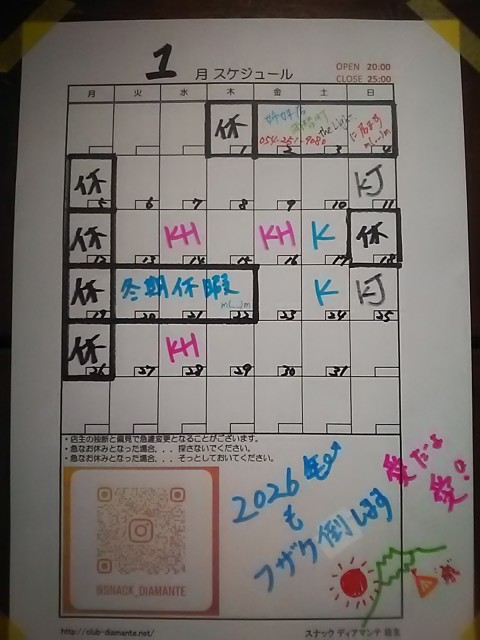 1月スケジュール
OPEN 20:00
CLOSE 25:00
月 火 水 木 金 土 日
休
1 2 3 4
054-251-9080
m(__)m
休 KJ
5 6 7 8 9 10 11
休 KH KH K 休
12 13 14 15 16 17 18
休 冬期休暇 K KJ
m(__)m
19 20 21 22 23 24 25
休 KH
26 27 28 29 30 31
・店主の独断と偏見で急遽変更となることがございます。
・急なお休みとなった場合、、、探さないでください。
・急なお休みとなった場合、、、そっとしておいてください。
@SNACK_DIAMANTE
2026年
も
フザケ倒します
愛だよ
愛!
http://club-diamante.net/
スナック ディアマンテ 店主